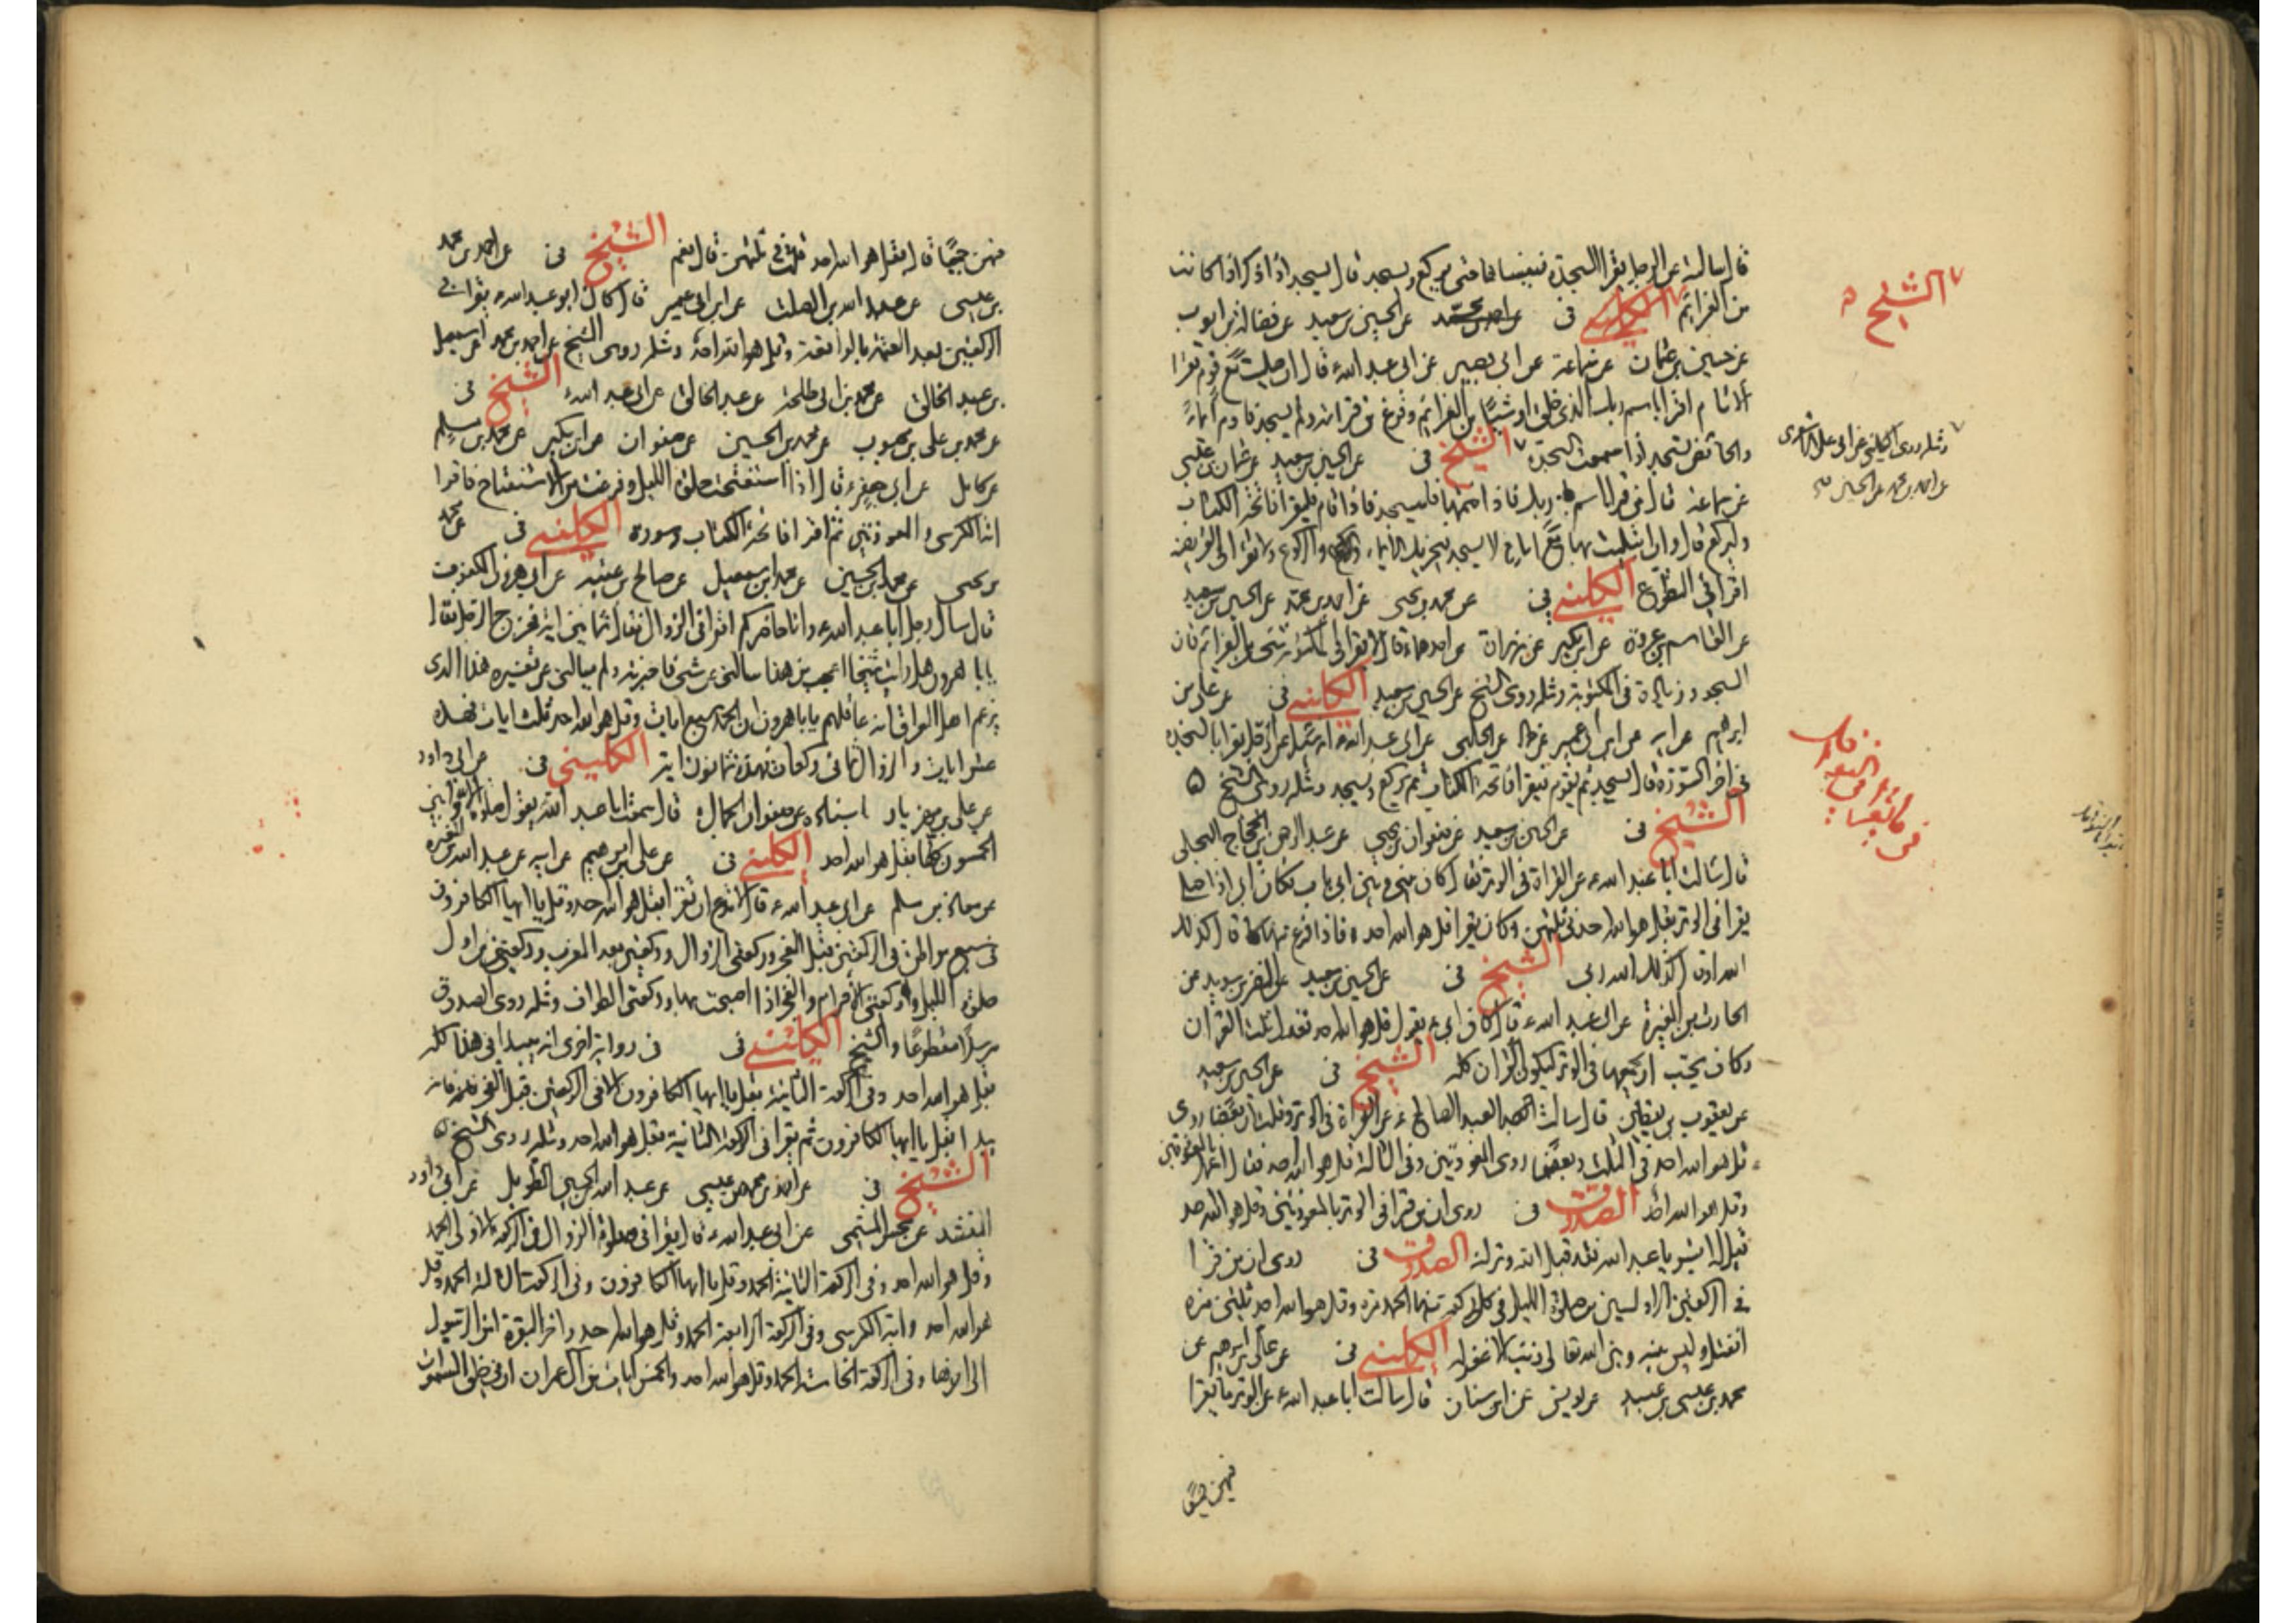 قال سالته عن الرجل يقرا السجدة فينساها حتى يركع ويسجد قال يسجد اذا ذكر اذا كانت
من العزائم الكليني فى عن احمد بن محمد عن الحسين بن سعيد عن فضالة بن ايوب
عن حسين بن عثمان عن سماعة عن ابى بصير عن ابى عبد الله ع قال ان صليت مع قوم فقرا
الامام اقرا باسم ربك الذى خلق او شيئا من العزائم وفرغ من قراءته ولم يسجد فاوم ايماء
والحائض تسجد اذا سمعت السجدة الشيخ فى عن الحسين بن سعيد عن عثمان بن عيسى
عن سماعة قال من قرا اقرا باسم ربك فاذا ختمها فليسجد فاذا قام فليقرا فاتحة الكتاب
وليركع قال وان ابتليت بها مع امام لا يسجد فيجزيك الايماء والركوع ولا تقرا فى الفريضة
اقرا فى التطوع الكليني فى عن محمد بن يحيى عن احمد بن محمد عن الحسين بن سعيد
عن القاسم بن عروة عن ابن بكير عن زرارة عن احدهما ع قال لا تقرا فى المكتوبة بشئ من العزائم فان
السجود زيادة فى المكتوبة ومثله روى الشيخ عن الحسين بن سعيد الكليني فى عن على بن
ابرهيم عن ابيه عن ابن ابى عمير عن حماد عن الحلبى عن ابى عبد الله ع انه سئل عن الرجل يقرا بالسجدة
فى اخر السورة قال يسجد ثم يقوم فيقرا فاتحة الكتاب ثم يركع ويسجد ومثله روى الشيخ
الشيخ فى عن الحسين بن سعيد عن صفوان بن يحيى عن عبد الرحمن بن الحجاج البجلى
قال سالت ابا عبد الله ع عن القراة فى الوتر فقال كان بينى وبين ابى باب فكان ابى اذا صلى
يقرا فى الوتر بقل هو الله احد فى ثلثهن وكان يقرا قل هو الله احد فاذا فرغ منها قال كذلك
الله او كذلك الله ربى الشيخ فى عن الحسين بن سعيد عن النضر بن سويد عن
الحارث بن المغيرة عن ابى عبد الله ع قال كان ابى ع يقول قل هو الله احد تعدل ثلث القران
وكان يحب ان يجمعها فى الوتر ليكون القران كله الشيخ فى عن الحسين بن سعيد
عن يعقوب بن يقطين قال سالت العبد الصالح ع عن القراة فى الوتر وقلت ان بعضا روى
قل هو الله احد فى الثلث وبعضا روى المعوذتين وفى الثالثة قل هو الله احد فقال اعمل بالمعوذتين
وقل هو الله احد الصدوق فى روى ان من قرا فى الوتر بالمعوذتين وقل هو الله احد
قيل له ابشر يا عبد الله فقد قبل الله وترك الصدوق فى روى ان من قرا
فى الركعتين الاوليين من صلوة الليل فى كل ركعة منهما الحمد مرة وقل هو الله احد ثلثين مرة
انفتل وليس بينه وبين الله تعالى ذنب الا غفر له الكليني فى عن على بن ابرهيم عن
محمد بن عيسى بن عبيد عن يونس عن ابن سنان قال سالت ابا عبد الله ع عن الوتر ما يقرا
فيهن جميعا
الشيخ
ومثله روى الكليني عن ابى على الاشعرى
عن احمد بن محمد عن الحسين
فيهن جميعا قال بقل هو الله احد قلت فى ثلثهن قال نعم الشيخ فى عن احمد بن محمد
بن عيسى عن عبد الله بن الصلت عن ابن ابى عمير قال كان ابو عبد الله ع يقرا فى
الركعتين بعد العتمة بالواقعة وقل هو الله احد ومثله روى الشيخ عن احمد بن محمد عن اسمعيل
بن عبد الخالق عن محمد بن ابى طلحة عن عبد الخالق عن ابى عبد الله ع الشيخ فى
عن محمد بن على بن محبوب عن محمد بن الحسين عن صفوان عن ابن بكير عن محمد بن مسلم
عن كامل عن ابى جعفر ع قال اذا استفتحت صلوة الليل وفرغت من الاستفتاح فاقرا
اية الكرسى والمعوذتين ثم اقرا فاتحة الكتاب وسورة الكليني فى عن محمد
بن يحيى عن محمد بن الحسين عن محمد بن اسمعيل عن صالح بن عقبة عن ابى هرون المكفوف
قال سال رجل ابا عبد الله ع وانا حاضر كم اقرا فى الزوال فقال ثمانين اية فخرج الرجل فقال
يا با هرون هل رايت شيخا اعجب من هذا سالنى عن شئ فاخبرته ولم يسالنى عن تفسيره هذا الذى
يزعم اهل العراق انه عاقلهم يا با هرون ان الحمد سبع ايات وقل هو الله احد ثلث ايات فهذه
عشر ايات والزوال ثمانى ركعات فهذه ثمانون اية الكليني فى عن ابى داود
عن على بن مهزيار باسناده عن صفوان الجمال قال سمعت ابا عبد الله ع يقول صلوة الاوابين
الخمسون كلها بقل هو الله احد الكليني فى عن على بن ابرهيم عن ابيه عن عبد الله بن المغيرة
عن معاذ بن مسلم عن ابى عبد الله ع قال لا تدع ان تقرا بقل هو الله احد وقل يا ايها الكافرون
فى سبع مواطن فى الركعتين قبل الفجر وركعتى الزوال وركعتين بعد المغرب وركعتين من اول
صلوة الليل وركعتى الاحرام والفجر اذا اصبحت بها وركعتى الطواف ومثله روى الصدوق
مرسلا مقطوعا والشيخ الكليني فى فى رواية اخرى انه يبدا فى هذا كله
بقل هو الله احد وفى الركعة الثانية بقل يا ايها الكافرون الا فى الركعتين قبل الفجر فانه
يبدا بقل يا ايها الكافرون ثم يقرا فى الركعة الثانية بقل هو الله احد ومثله روى الشيخ
الشيخ فى عن احمد بن محمد بن عيسى عن عبد الله الطويل عن ابى داود
المنشد عن محسن الميثمى عن ابى عبد الله ع قال يقرا فى صلوة الزوال فى الركعة الاولى الحمد
وقل هو الله احد وفى الركعة الثانية الحمد وقل يا ايها الكافرون وفى الركعة الثالثة الحمد وقل
هو الله احد واية الكرسى وفى الركعة الرابعة الحمد وقل هو الله احد واخر البقرة امن الرسول
الى اخرها وفى الركعة الخامسة الحمد وقل هو الله احد والخمس ايات من ال عمران ان فى خلق السموات